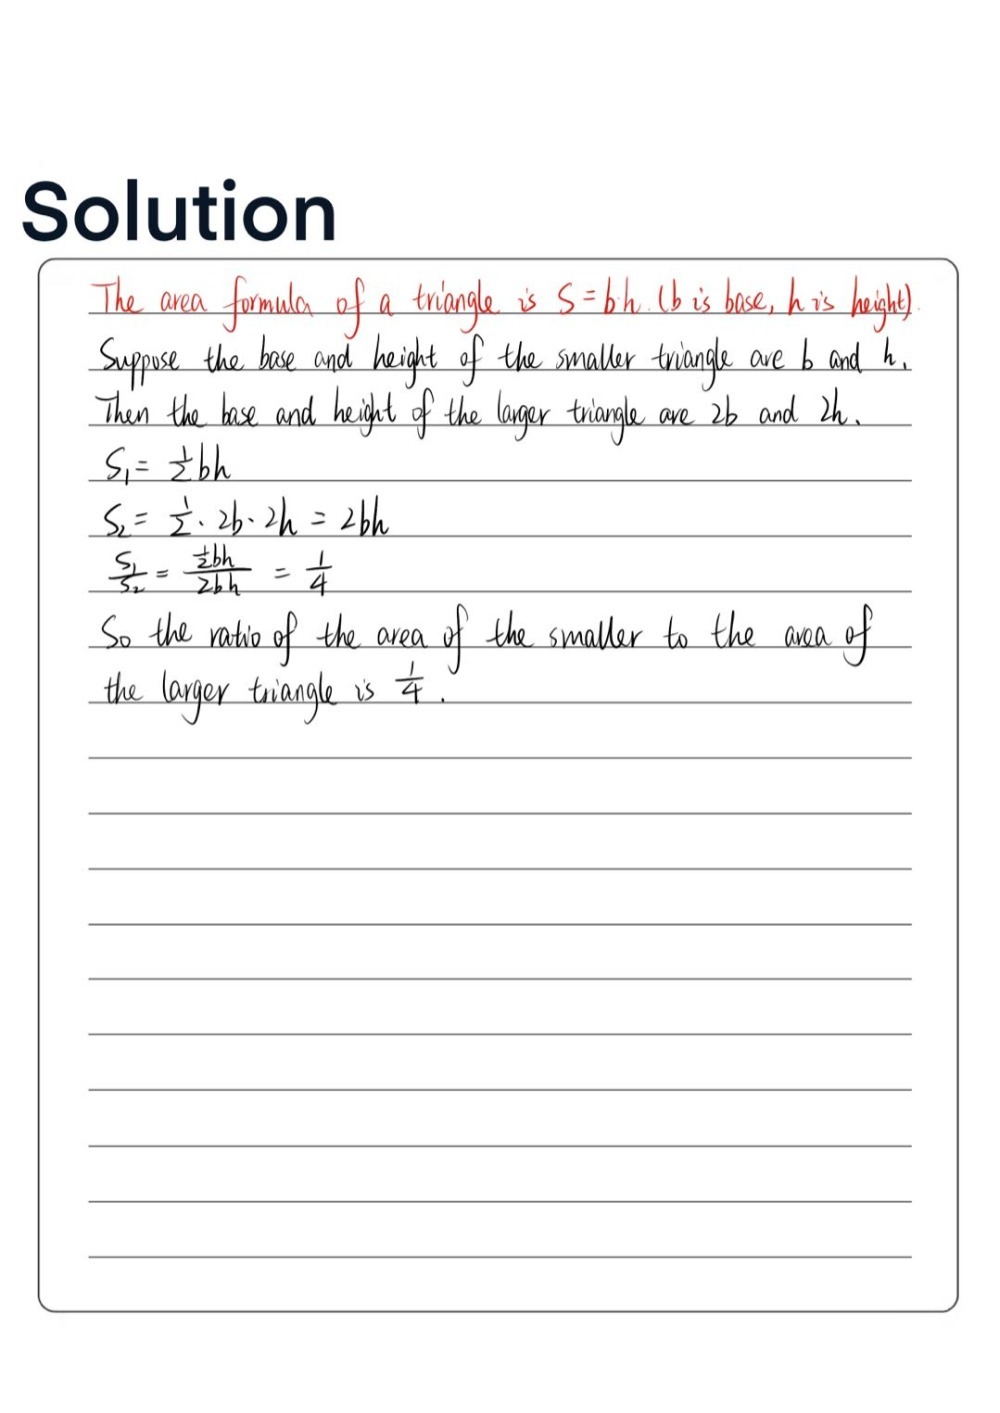 Solution
The area formula of a triangle is S = b·h. (b is base, h is height).
Suppose the base and height of the smaller triangle are b and h.
Then the base and height of the larger triangle are 2b and 2h.
S₁ = ½bh
S₂ = ½ · 2b · 2h = 2bh
S₁/S₂ = ½bh/2bh = 1/4
So the ratio of the area of the smaller to the area of
the larger triangle is 1/4.